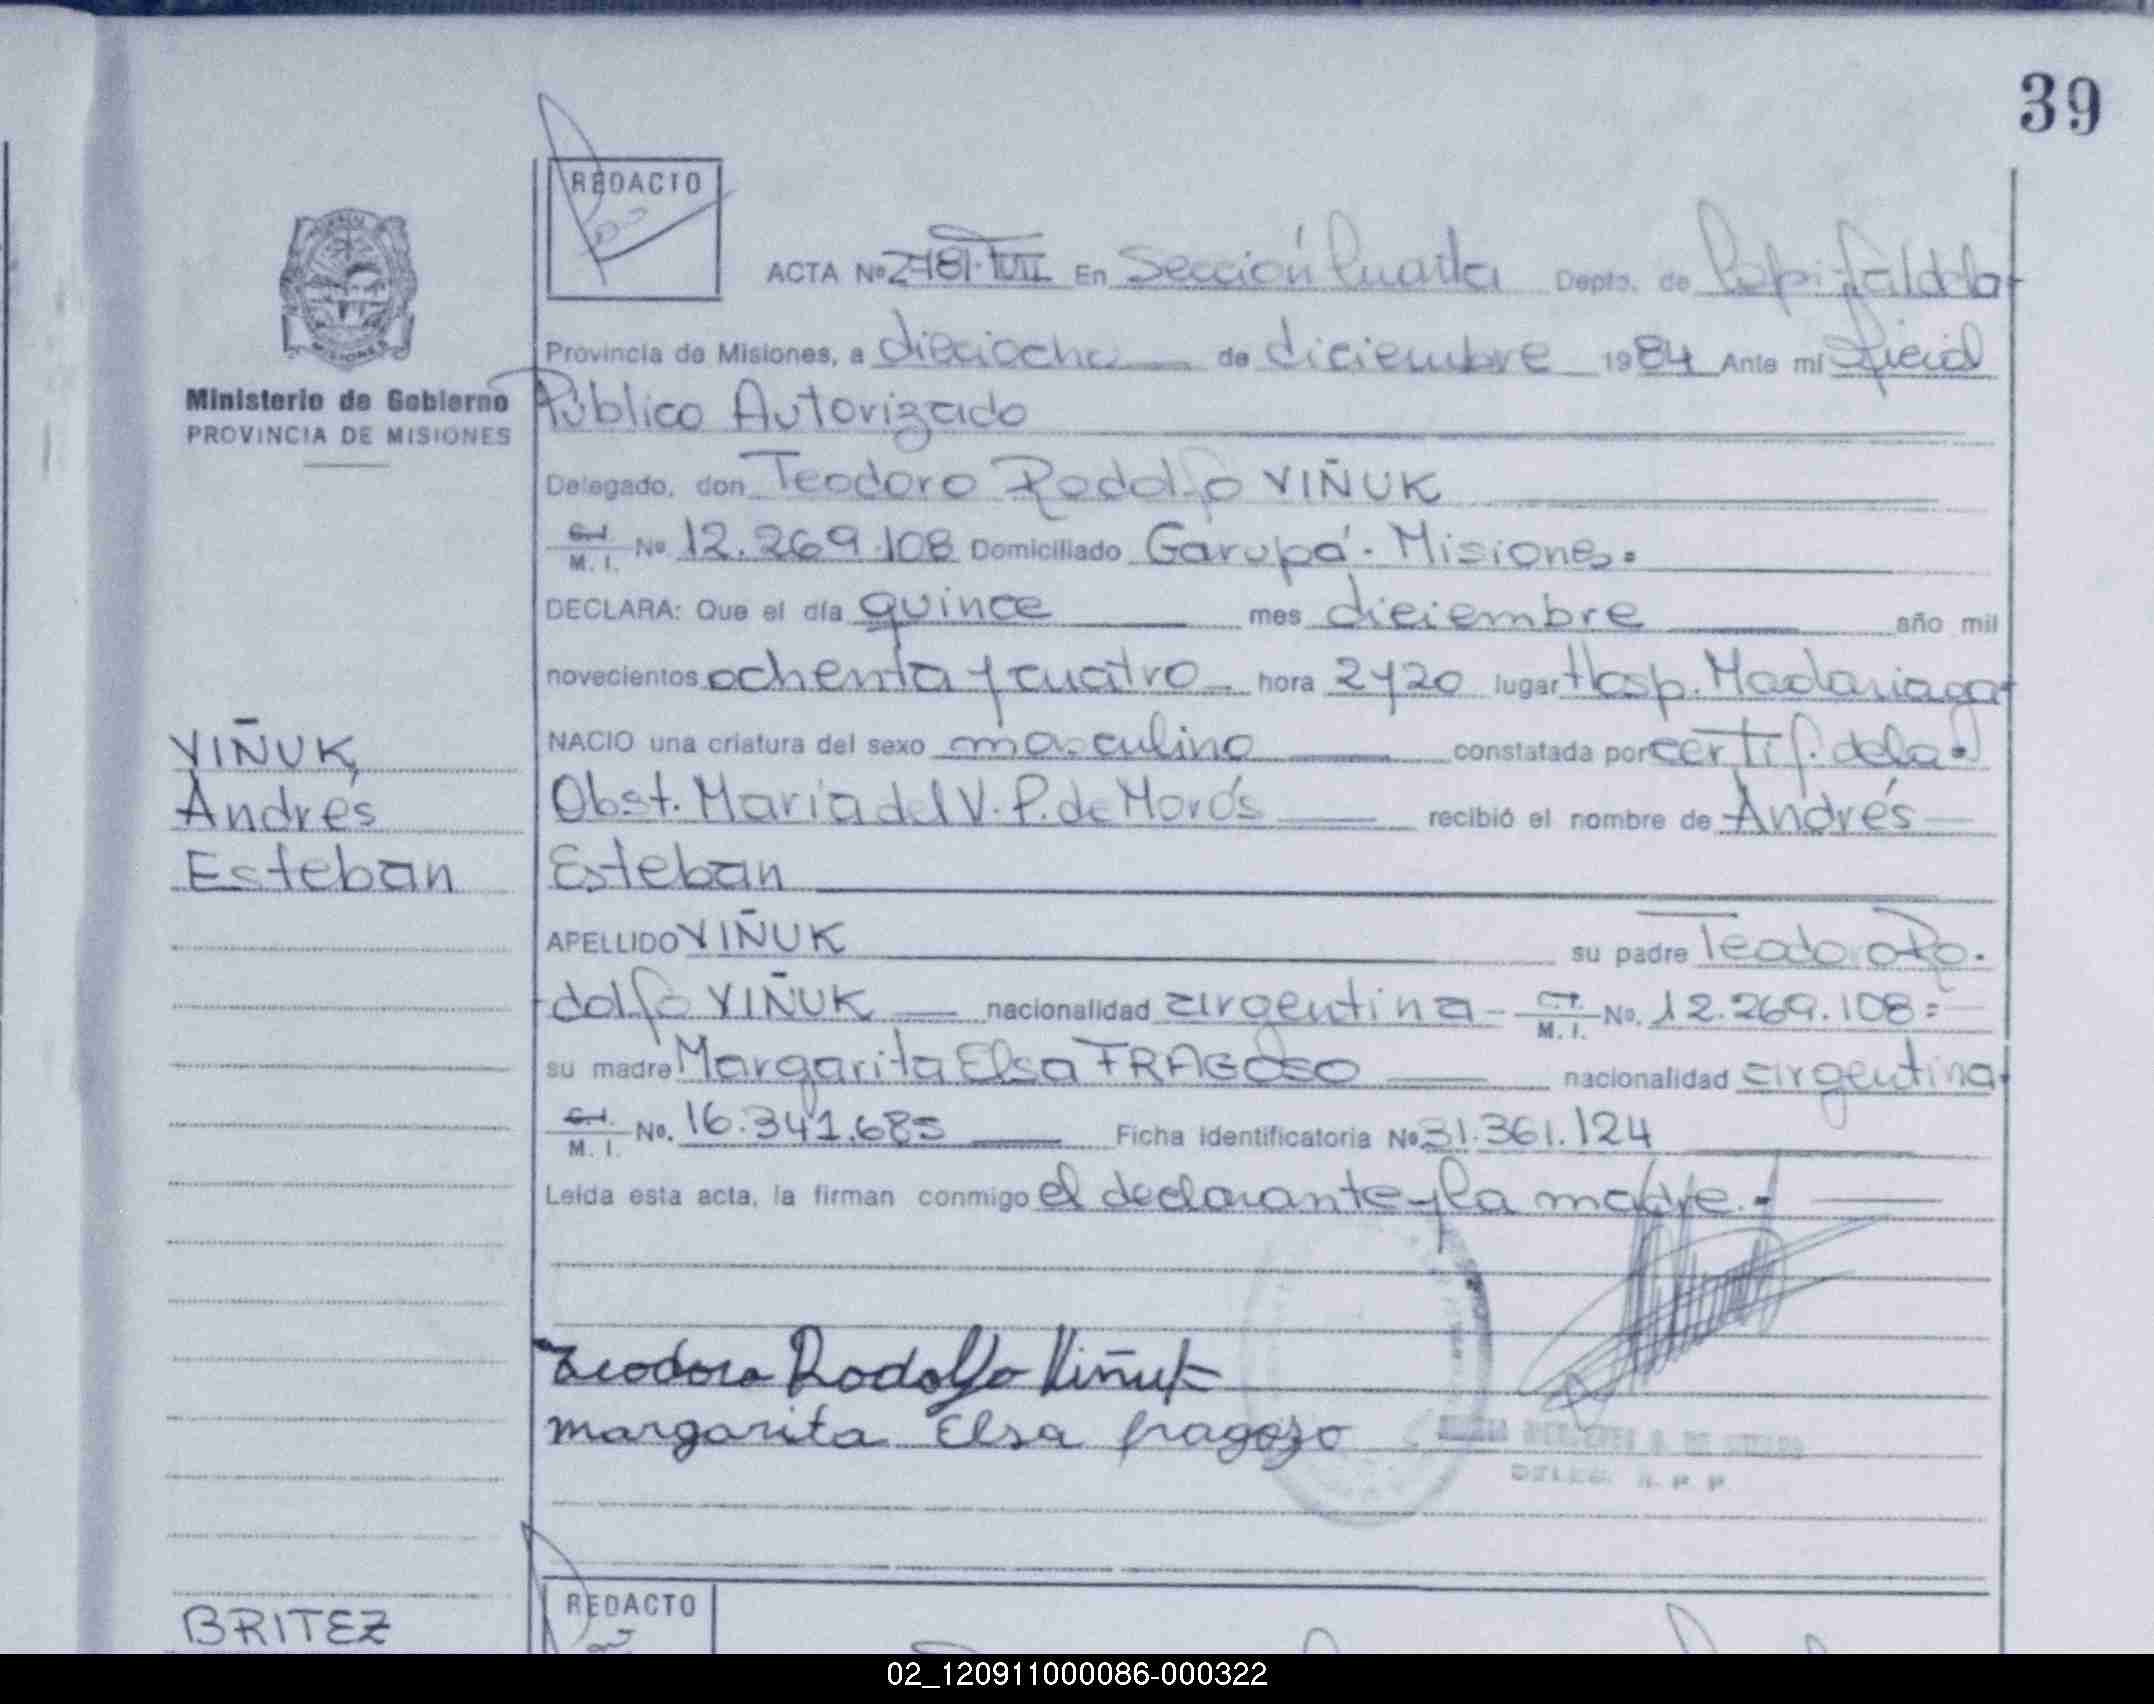 39
REDACTO
ACTA Nº 2481-VIII En Sección Cuarta Depto. de Capital de la
Provincia de Misiones, a dieciocho de diciembre 1984 Ante mí Oficial
Ministerio de Gobierno
PROVINCIA DE MISIONES
Público Autorizado
Delegado, don Teodoro Rodolfo VIÑUK
M. I. Nº 12.269.108 Domiciliado Garupá - Misiones.
DECLARA: Que el día quince mes diciembre año mil
novecientos ochenta y cuatro hora 2y20 lugar Hosp. Madariaga
NACIO una criatura del sexo masculino constatada por certif. de la
VIÑUK,
Andrés
Esteban
Obst. María del V. P. de Morós recibió el nombre de Andrés
Esteban
APELLIDO VIÑUK su padre Teodoro Ro-
dolfo VIÑUK nacionalidad argentina M. I. No. 12.269.108
su madre Margarita Elsa FRAGOSO nacionalidad argentina
M. I. Nº. 16.341.685 Ficha Identificatoria Nº 31.361.124
Leída esta acta, la firman conmigo el declarante y la madre.-
Teodoro Rodolfo Viñuk
margarita Elsa fragozo
REDACTO
BRITEZ
02_120911000086-000322